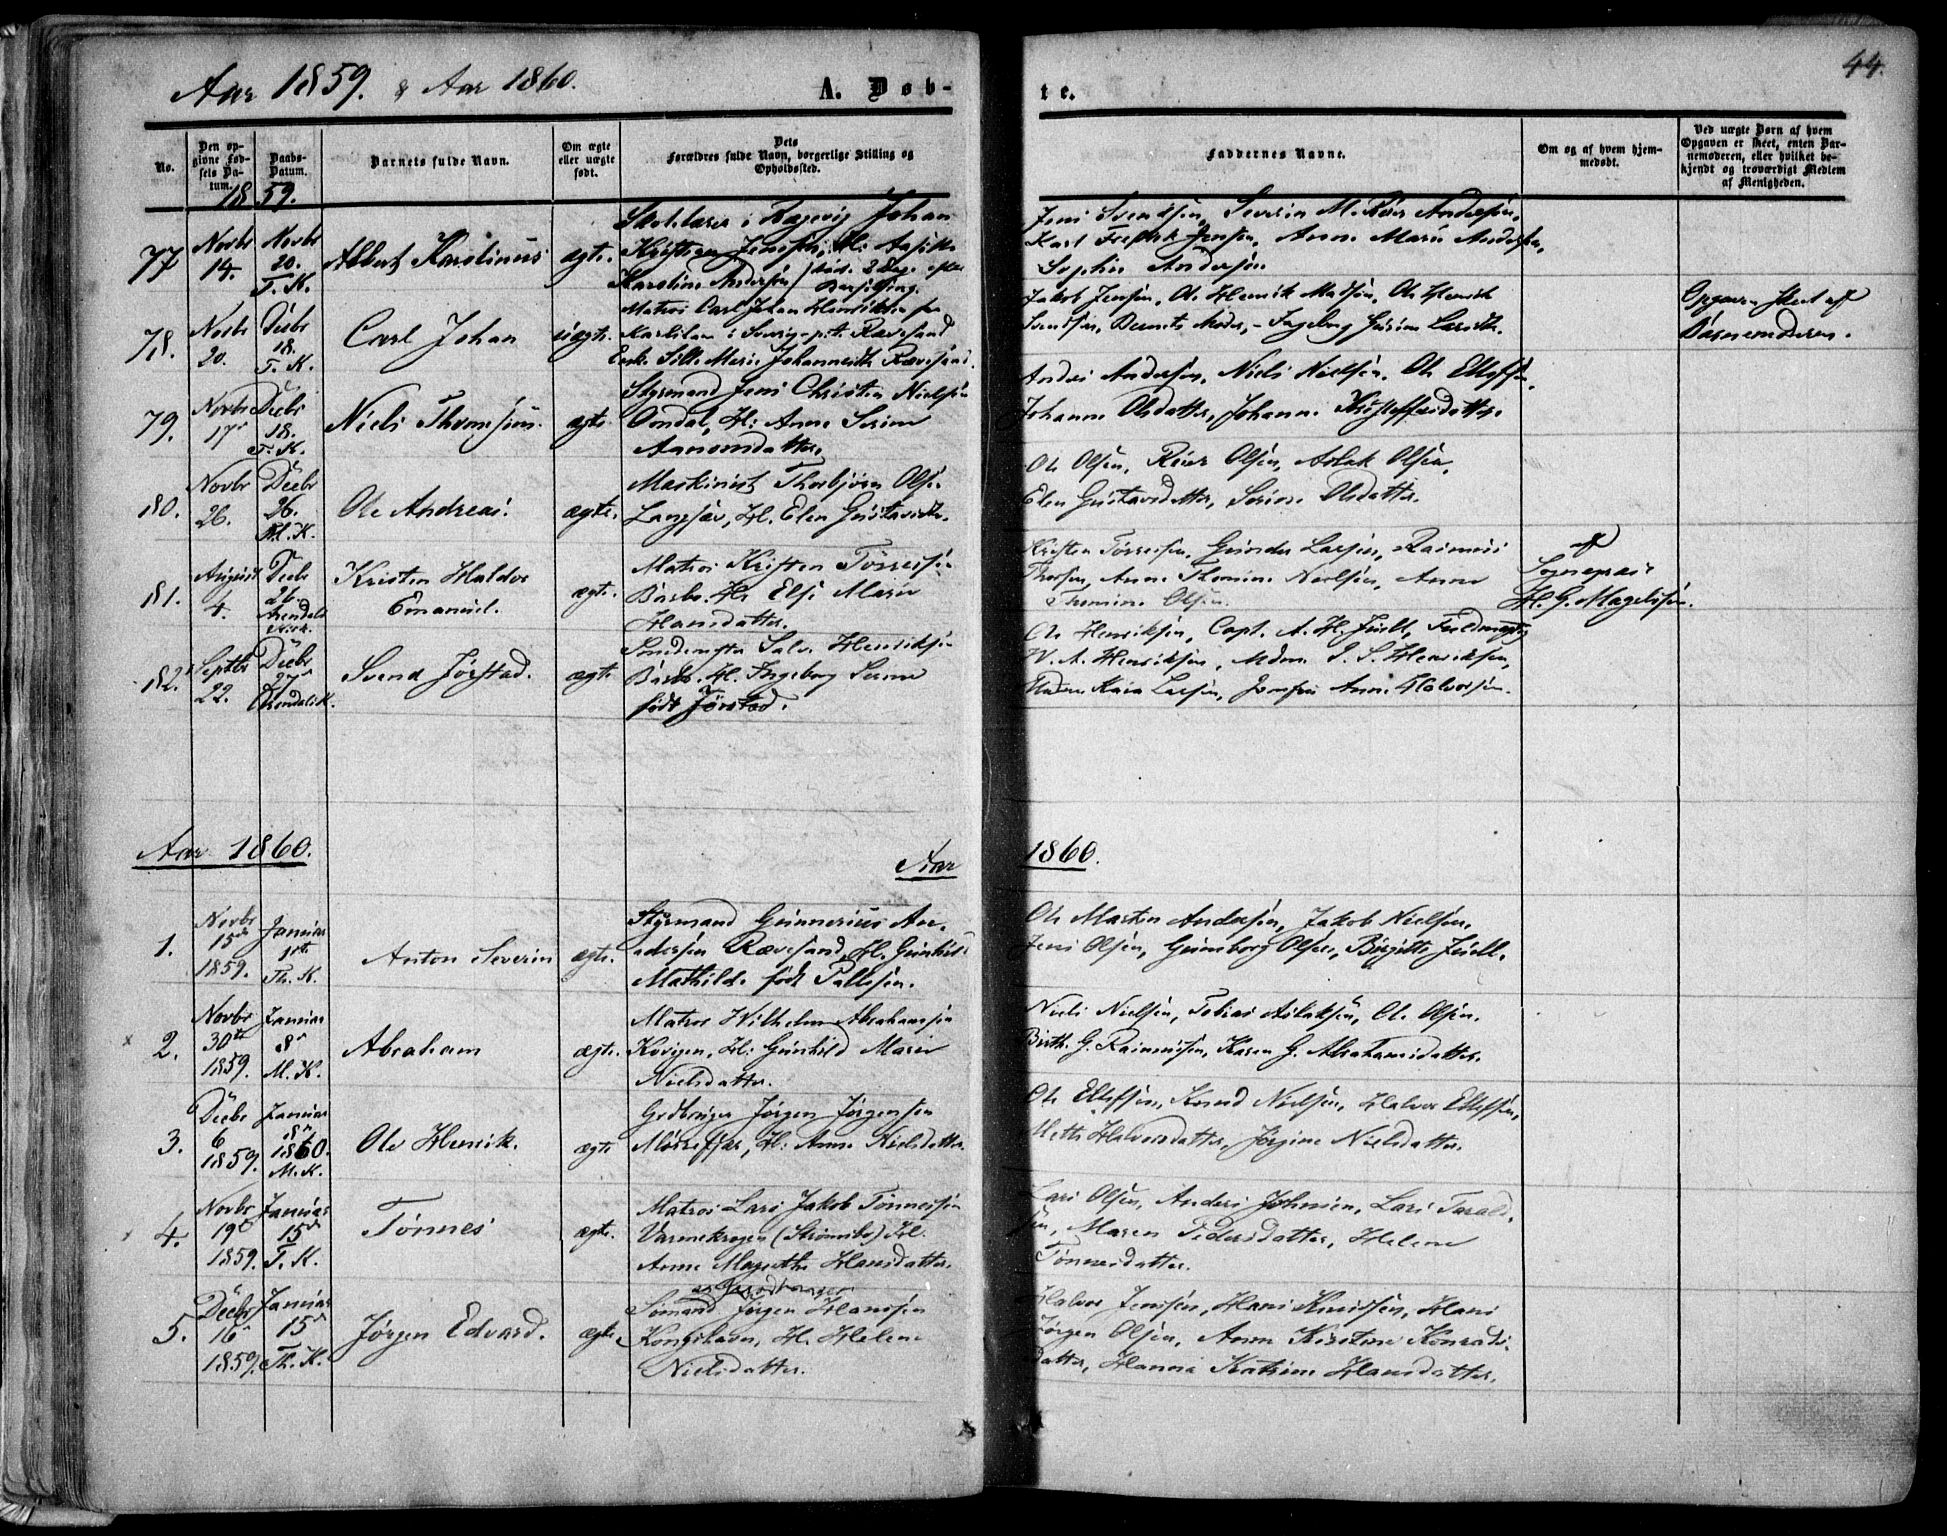 Aar 1859. & Aar 1860. A. Døb-
te. 44.
No.
Den op-
givne Fød-
sels Da-
tum.
Daabs-
Datum.
Barnets fulde Navn.
Om ægte
eller uægte
født.
Dets
Forældres fulde Navn, borgerlige Stilling og
Opholdssted.
Faddernes Navne.
Om og af hvem hjem-
medøbt.
Ved uægte Børn af hvem
Opgaven er skeet, enten Bar-
nemoderen, eller hvilket be-
kjendt og troværdigt Medlem
af Menigheden.
1859.
77
Novbr
14.
Novbr
20.
T. K.
Albert Karolinus
ægte.
Skolelærer i Johan
Kristian Jensen,
Karoline Andersen
Jens Svendsen, Severin M. Reier Andersen,
Karl Fredrik Jensen, Anne Marie Andersen,
Sophie Andersen
78.
Novbr
20.
Decbr
18.
T. K.
Carl Johan
uægte.
Matros Carl Johan Henriksen fra
i Sverig, pt. Rævesand
Enke Sille Marie Johannesdtr Rævesand.
Jakob Jensen, Ole Henrik Madsen, Ole Henrik
Svendsen, Barnets Moder, Ingeborg
Opgaven skeet af
Barnemoderen.
79.
Novbr
17
Decbr
18.
T. K.
Niels Thomsius
ægte
Styrmand Jens Christen Nielsen
Omdal, H: Anne Serine
Aanonsdatter.
Anders Andersen, Niels Nielsen, Ole Ellefsen,
Johanne Olsdatter, Johanne Kristoffersdatter.
80.
Novbr
26.
Decbr
26.
M. K.
Ole Andreas.
ægte.
Maskinist Thorbjørn Olsen
Langsæv, H. Elen Gustavsdtr.
Ole Olsen, Reier Olsen, Aslak Olsen,
Elen Gustavsdatter, Serine Olsdatter.
181.
August
4.
Decbr
26.
Arendals
Kirk.
Kristen Halvor
Emanuel.
ægte.
Matros Kristen Tørresen
Barbo. H. Else Marie
Hansdatter.
Kristen Tørresen, Gunder Larsen, Rasmus
Thorsen, Anne Thomine Neelsen, Anne
Thomine Olsen.
af
Sognepræst
H. G. Magelssen.
182.
Septbr
22.
Decbr
27
Arendals K.
Svend Jørstad.
ægte
Salve Henriksen
Barbo. H. Ingeborg Serine
født Jørstad.
Ole Henriksen, Capt. A. H. Juell, Fuldmægtig
W. A. Henriksen, Mdm. S. Henriksen,
Maren Kaia Larsen, Jomfru Anne Halvorsen.
Aar 1860. Aar
1860.
1.
Novbr
15de
1859.
Januar
1ste
Th. K.
Anton Severin
ægte.
Styrmand Gunnerius An-
dersen Rævesand, H. Gunhild
Mathilde født Pallesen.
Ole Martin Andersen, Jakob Nielsen,
Jens Olsen, Gunborg Olsen, Birgitte Juell.
2.
Novbr
30te
1859.
Januar
8
M. K.
Abraham
ægte.
Matros Wilhelm Abrahamsen
H: Gunhild Marie
Nielsdatter.
Niels Nielsen, Tobias Aslaksen, Ole Olsen.
Birthe G. Rasmussen, Karen G. Abrahamsdatter.
3.
Decbr
6
1859.
Januar
8
1860.
M. K.
Ole Henrik.
ægte
Grdbruger Jørgen Jørgensen
Mørefjær, H: Anne Nielsdatter.
Ole Ellefsen, Knud Nielsen, Halvor Ellefsen,
Mette Halvorsdatter, Jørgine Nielsdatter.
4.
Novbr
19de
1859.
Januar
15de
T. K.
Tønnes
ægte.
Matros Lars Jakob Tønnesen
Varmekrogen (Strømsbo) H.
Anne Magrethe Hansdatter.
Lars Olsen, Anders Johnsen, Lars Tarald-
sen, Maren Pedersdatter, Helene
Tønnesdatter.
5.
Decbr
16
1859.
Januar
15de
Th. K.
Jørgen Edvard.
ægte
Sømand Jørgen Hanssen
Kongshavn, H. Helene
Nielsdatter.
Halvor Jenssen, Hans Knudsen, Hans
Jørgen Olsen, Anne Kirstine Konrads-
datter, Hanna Katrine Hansdatter.